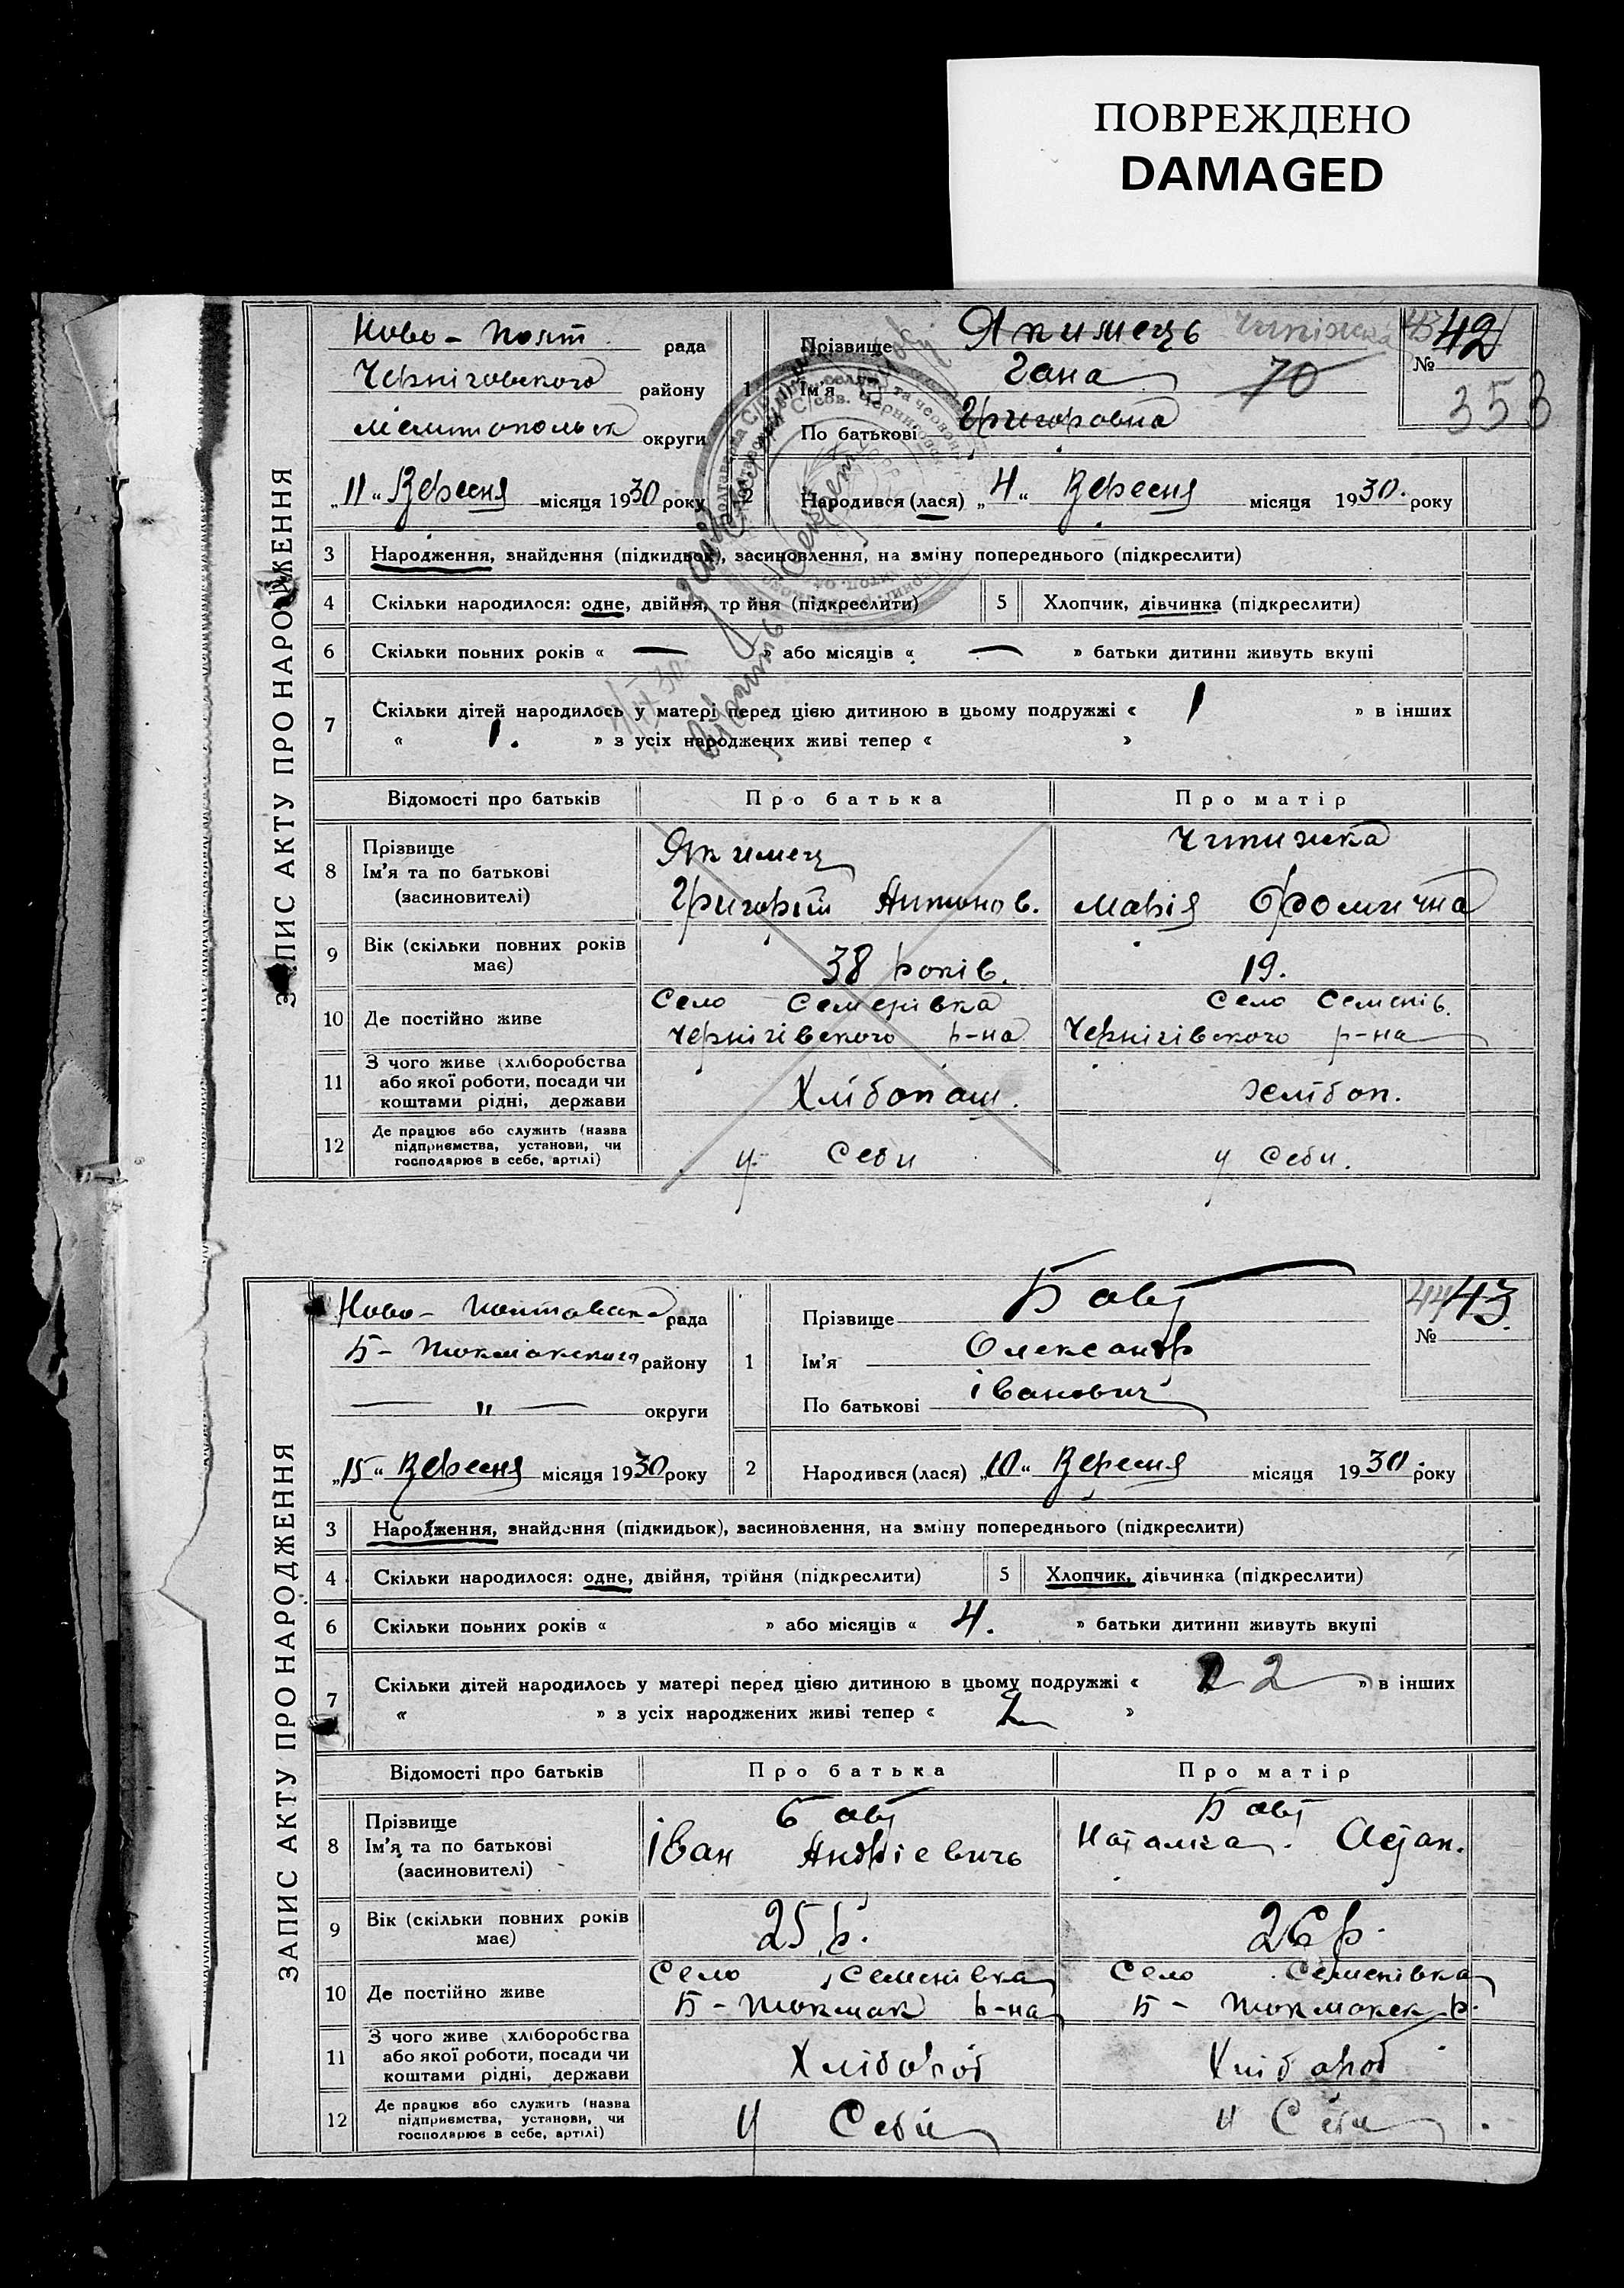 ПОВРЕЖДЕНО
DAMAGED
ЗАПИС АКТУ ПРО НАРОДЖЕННЯ
Ново - Полт рада
Чернiговского району
Мелитопольск округи
„11“ Вересня місяця 1930 року
1
Прізвище Якимець
Ім'я Гана
70
По батькові Григоровна
43 42
№
353
2
Народився (лася) „4“ Вересня місяця 1930. року
3 Народження, знайдення (підкидьок), засиновлення, на зміну попереднього (підкреслити)
4 Скільки народилося: одне, двійня, трійня (підкреслити) 5 Хлопчик, дівчинка (підкреслити)
6 Скільки повних років « — » або місяців « — » батьки дитини живуть вкупі
7 Скільки дітей народилось у матері перед цією дитиною в цьому подружжі « 1 » в інших
« 1. » з усіх народжених живі тепер « »
Відомості про батьків Про батька Про матір
8 Прізвище Ім'я та по батькові (засновителі)
Якимец
Григорій Антонов.
Чипижка
Марія Фомична
9 Вік (скільки повних років має) 38 років. 19.
10 Де постійно живе
Село Семенівка Село Семенів.
Чернігівского р-на Чернігівского р-на
11 З чого живе (хліборобства або якої роботи, посади чи коштами рідні, держави Хлібопаш. Хлібоп.
12 Де працює або служить (назва підприємства, установи, чи господарює в себе, артілі) у Себи у Себи.
ЗАПИС АКТУ ПРО НАРОДЖЕННЯ
Ново - Полтавська рада
Б - Токмакского району
— " — округи
„15“ Вересня місяця 1930 року
1
Прізвище Бовт
Ім'я Олександр
По батькові іванович
44 43.
№
2 Народився (лася) „10“ Вересня місяця 1930. року
3 Народження, знайдення (підкидьок), засиновлення, на зміну попереднього (підкреслити)
4 Скільки народилося: одне, двійня, трійня (підкреслити) 5 Хлопчик, дівчинка (підкреслити)
6 Скільки повних років « » або місяців « 4. » батьки дитини живуть вкупі
7 Скільки дітей народилось у матері перед цією дитиною в цьому подружжі « 2 2 » в інших
« » з усіх народжених живі тепер « 2 »
Відомості про батьків Про батька Про матір
8 Прізвище Ім'я та по батькові (засиновителі)
Бовт Бовт
іван Андріевичь Наталка. Остап.
9 Вік (скільки повних років має) 25 р. 26 р.
10 Де постійно живе
Село Семенівка Село Семенівка
Б - Токмак р-на Б - Токмакск р.
11 З чого живе (хліборобства або якої роботи, посади чи коштами рідні, держави Хлібороб Хлібороб
12 Де працює або служить (назва підприємства, установи, чи господарює в себе, артілі) у Себи у Себи